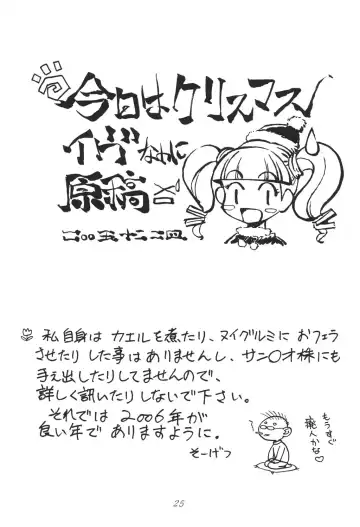 今日はクリスマス
イヴなのに
原稿
二〇〇五十二二四
私自身は カエルを煮たり、ヌイグルミに おフェラ
させたり した事は ありませんし、サン〇オ株にも
手ぇ出したりしてませんので、
詳しく訊いたり しないで下さい。
それでは 2006年が
良い年で ありますように。
そーげつ
もうすぐ
廃人かな♡
25